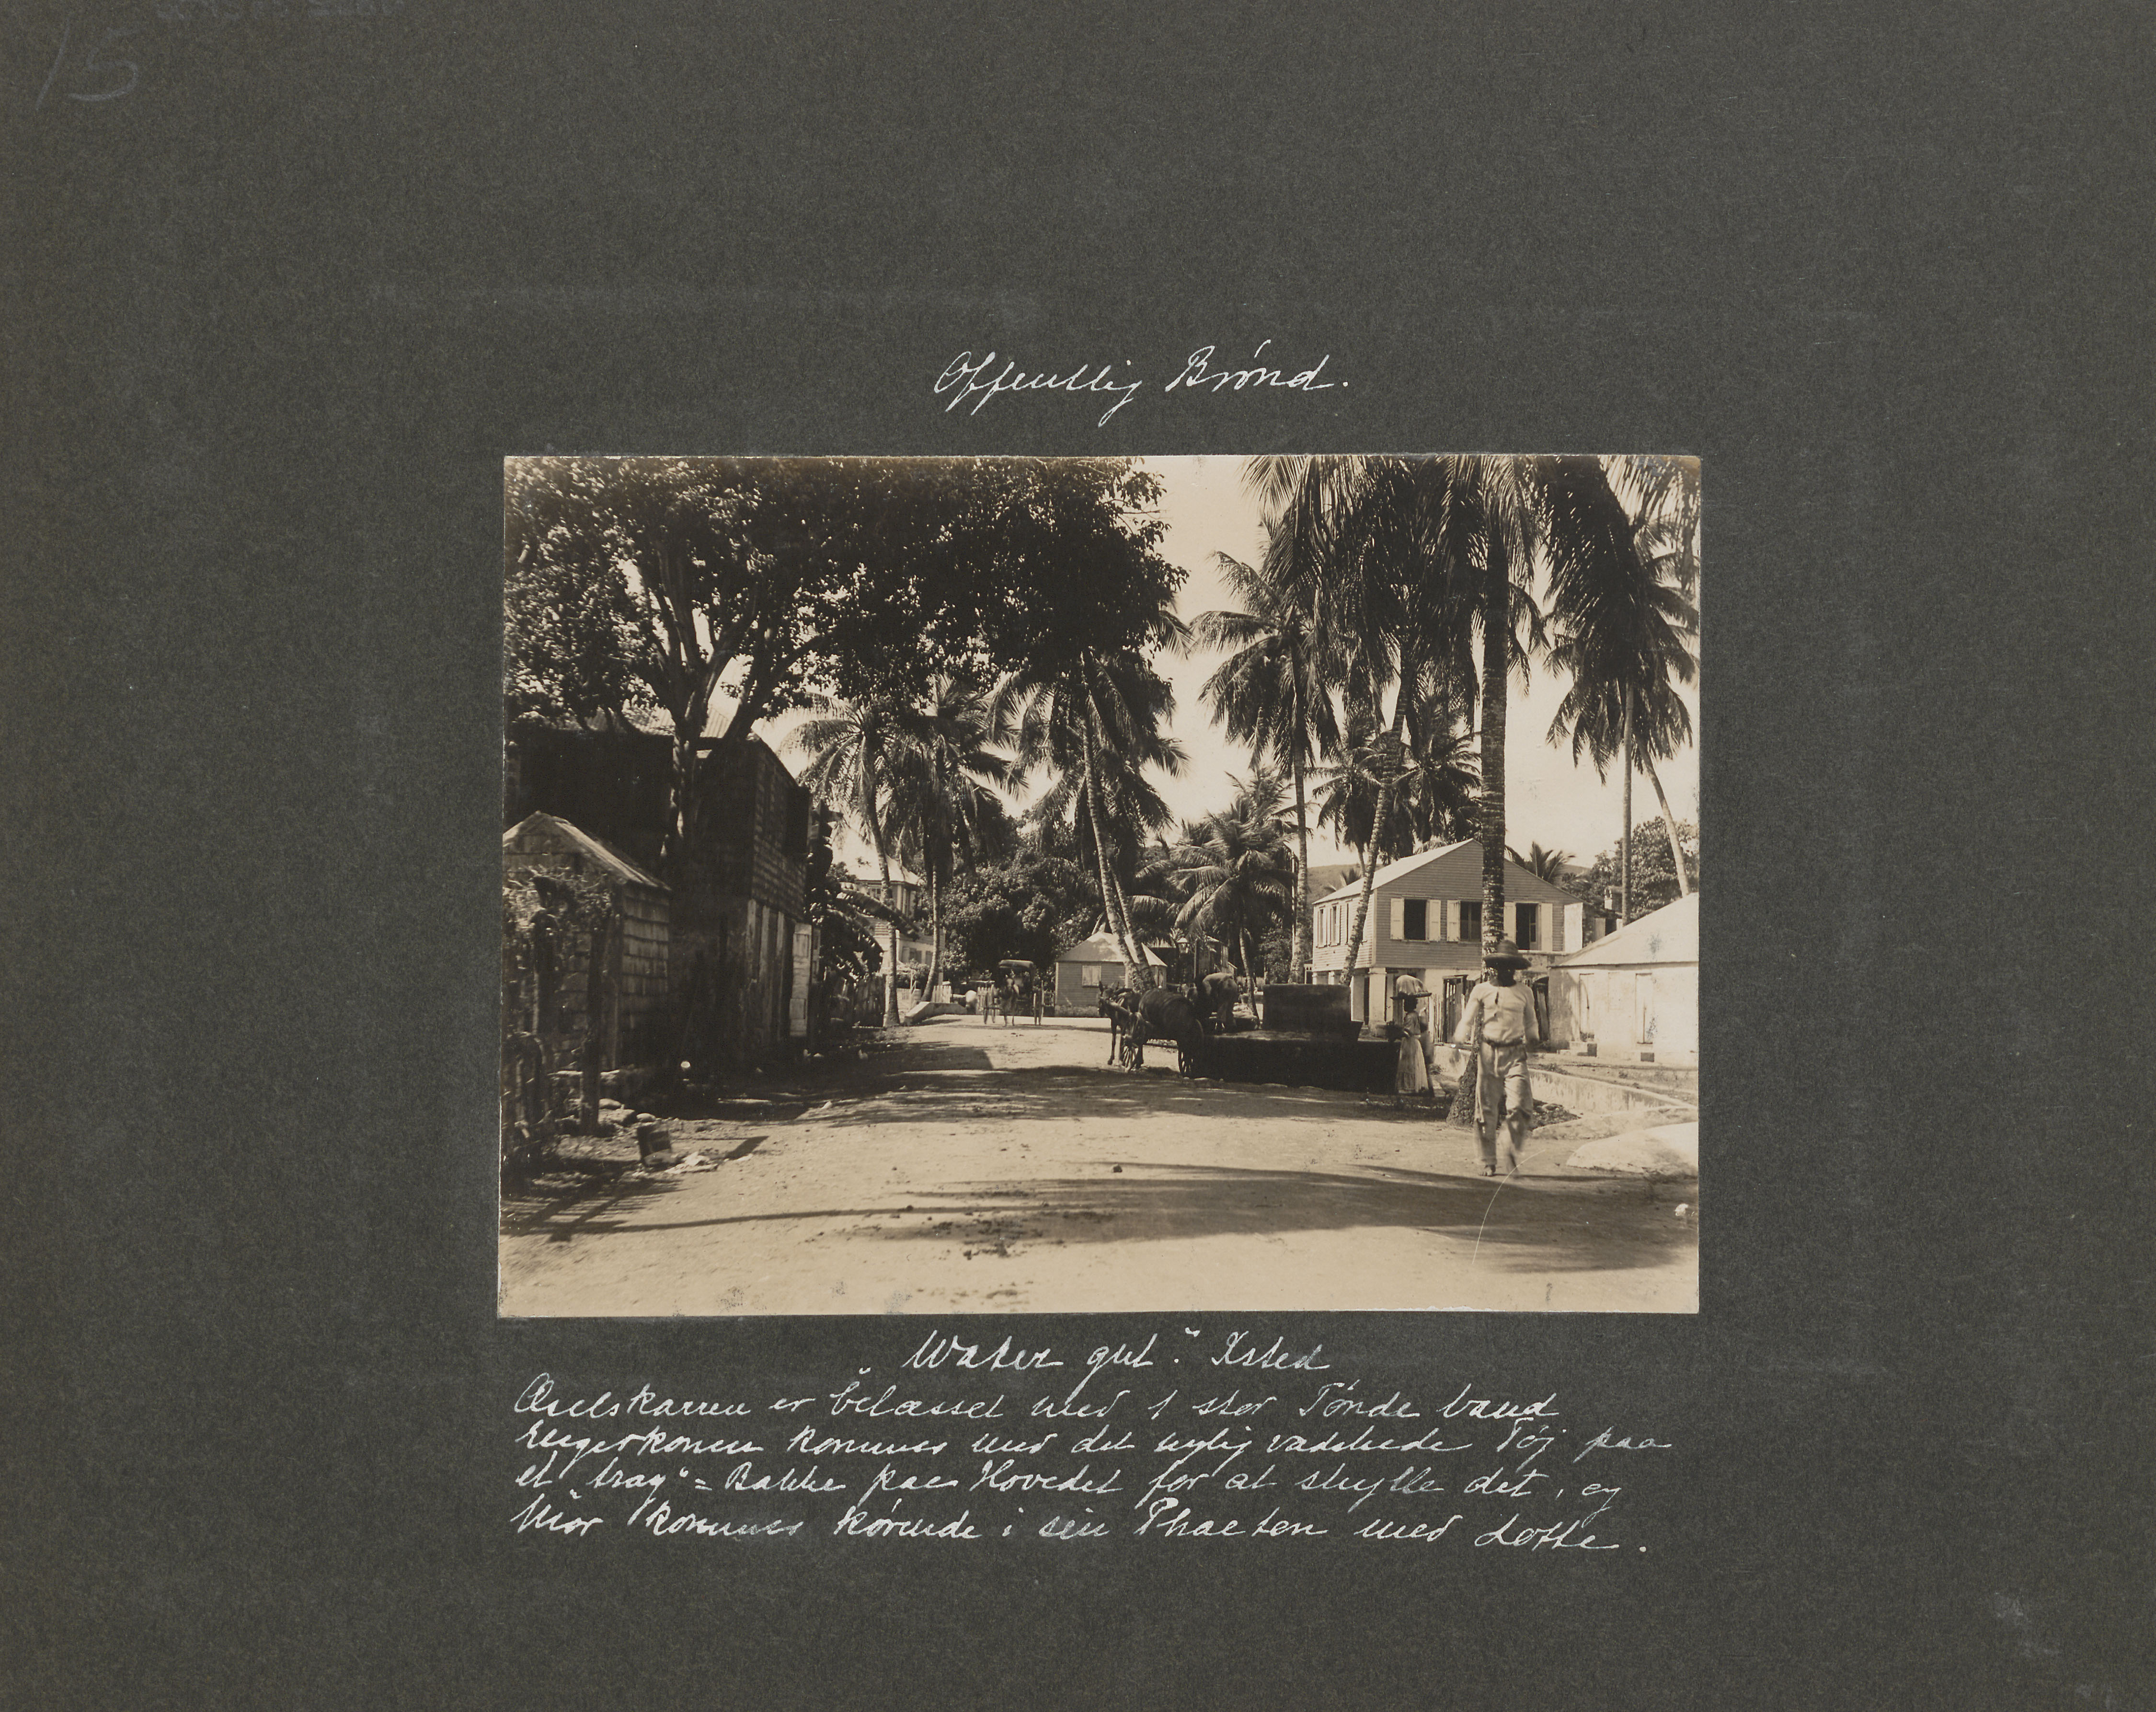 15
Offentlig Brønd.
"Water gut." Xsted
Æselskarren er belæsset med 1 stor Tønde vand
Negerkonen kommer med det nylig vadskede Tøj paa
et "tray" = Bakke paa Hovedet for at skylle det, og
Mor kommer kørende i sin Phaeton med Lotte.